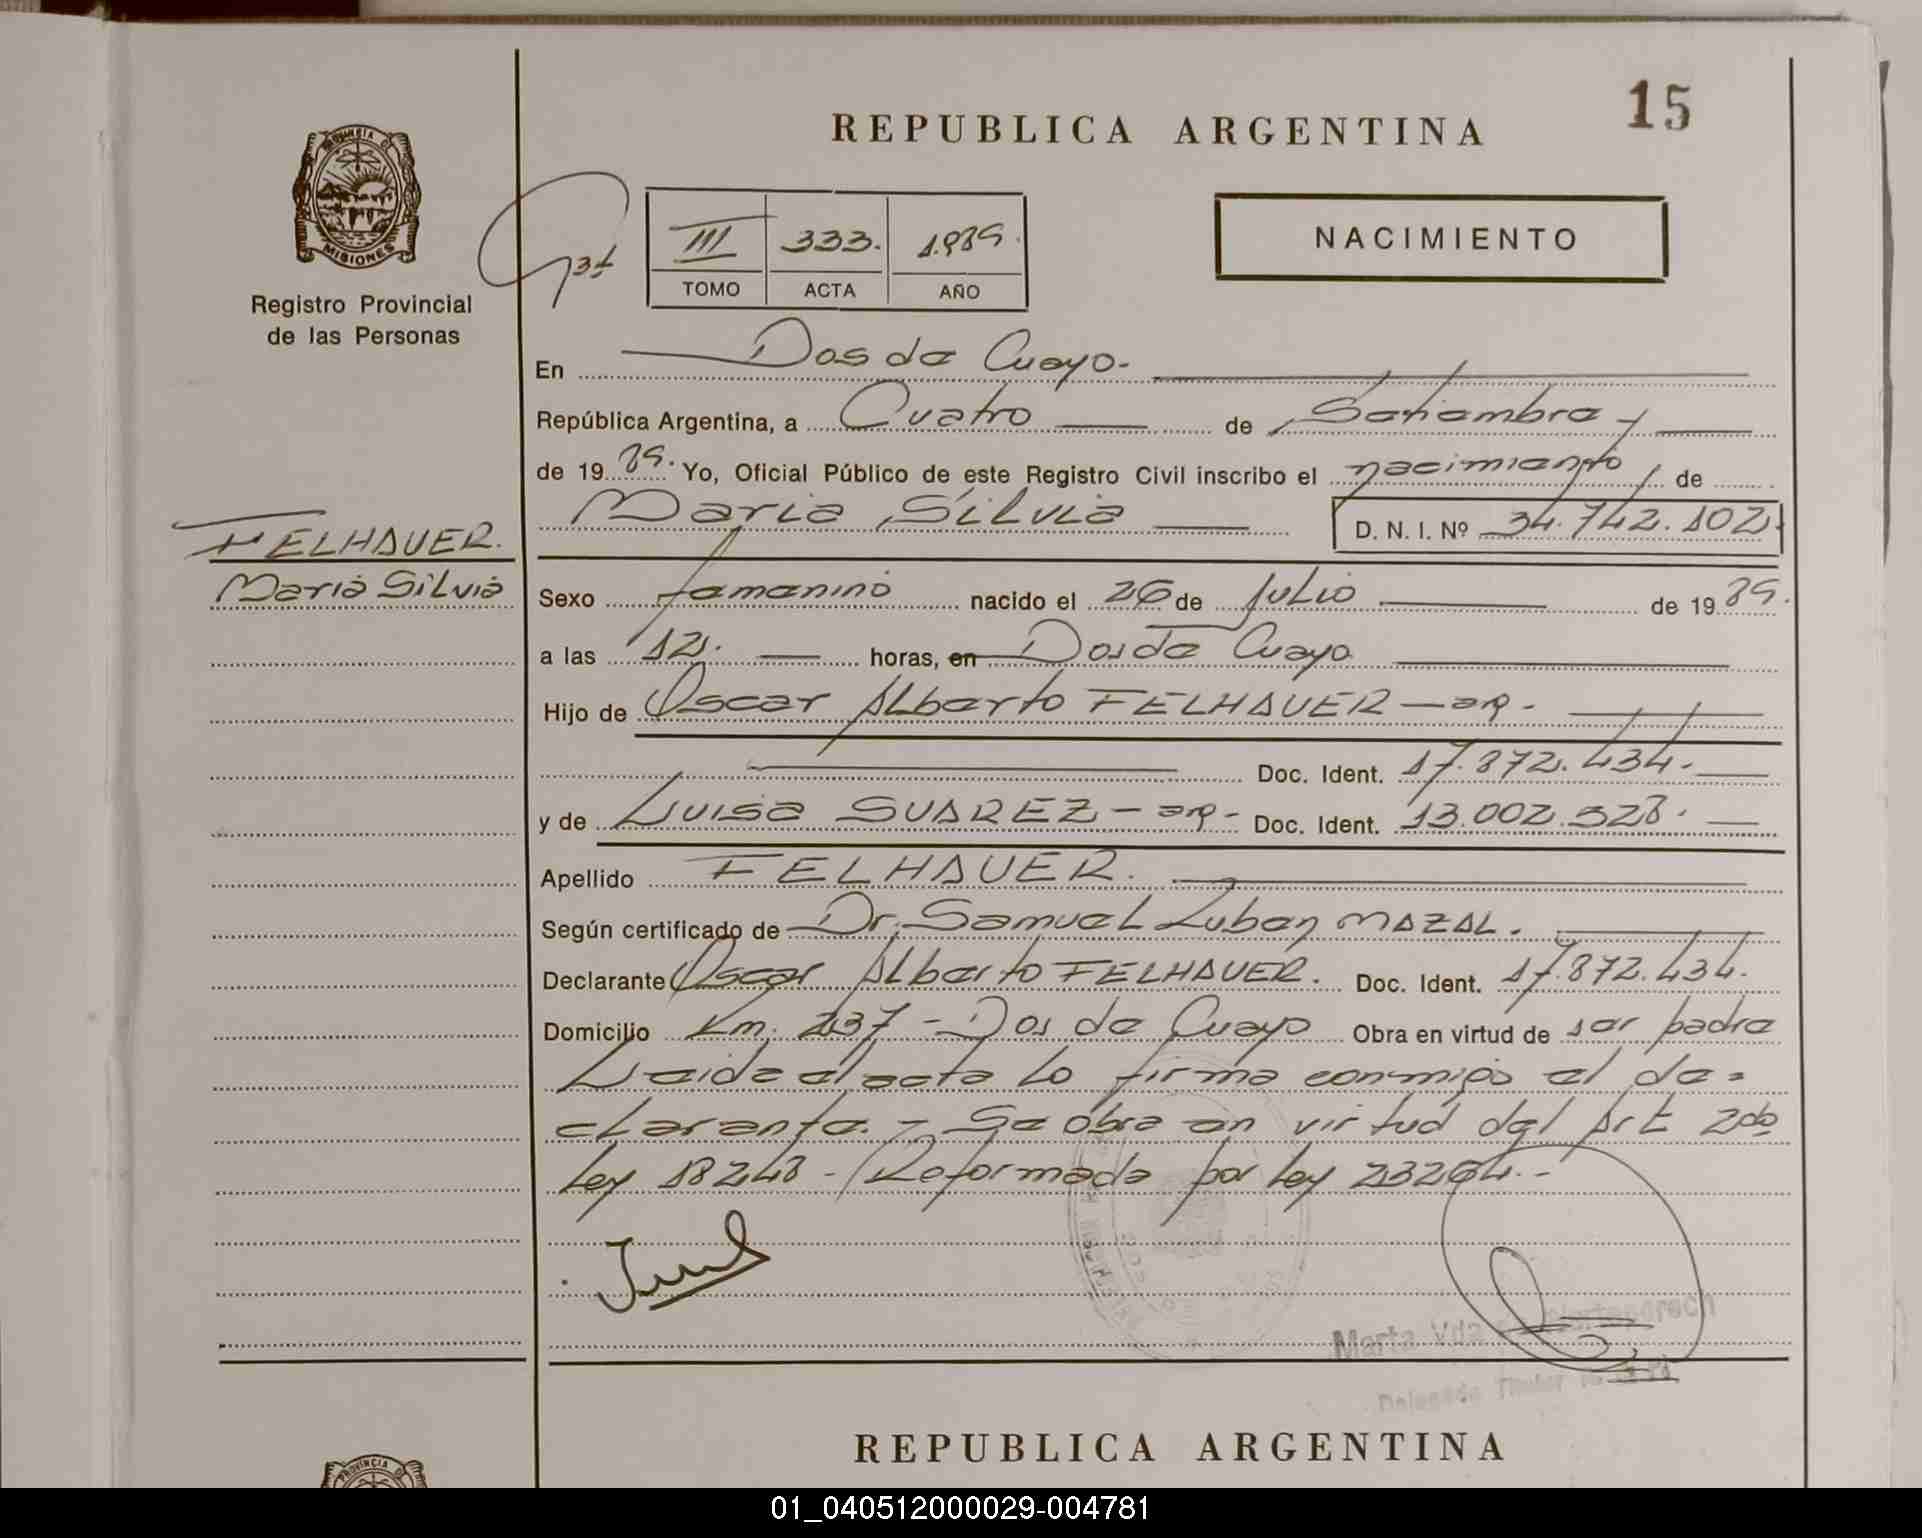 15
REPUBLICA ARGENTINA
PROVINCIA DE
MISIONES
Registro Provincial
de las Personas
III 333. 1.989.
TOMO ACTA AÑO
NACIMIENTO
En Dos de Mayo.
República Argentina, a Cuatro de Setiembre
de 19 89. Yo, Oficial Público de este Registro Civil inscribo el nacimiento de
Maria Silvia D. N. I. Nº 34.742.102.
FELHAUER.
Maria Silvia
Sexo femenino nacido el 26 de julio de 19 89.
a las 12. horas, en Dos de Mayo
Hijo de Oscar Alberto FELHAUER - ar -
Doc. Ident. 17.872.434.
y de Luisa SUAREZ - ar - Doc. Ident. 13.002.528.
Apellido FELHAUER.
Según certificado de Dr. Samuel Luben MAZAL.
Declarante Oscar Alberto FELHAUER. Doc. Ident. 17.872.434.
Domicilio Km. 237 - Dos de Mayo Obra en virtud de ser padre
Leida el acta lo firma conmigo el de=
clarante. - Se obra en virtud del Art 2do
Ley 18248 - Reformada por Ley 23264.-
Marta Vda
Delegada Titular
REPUBLICA ARGENTINA
PROVINCIA DE
01_040512000029-004781